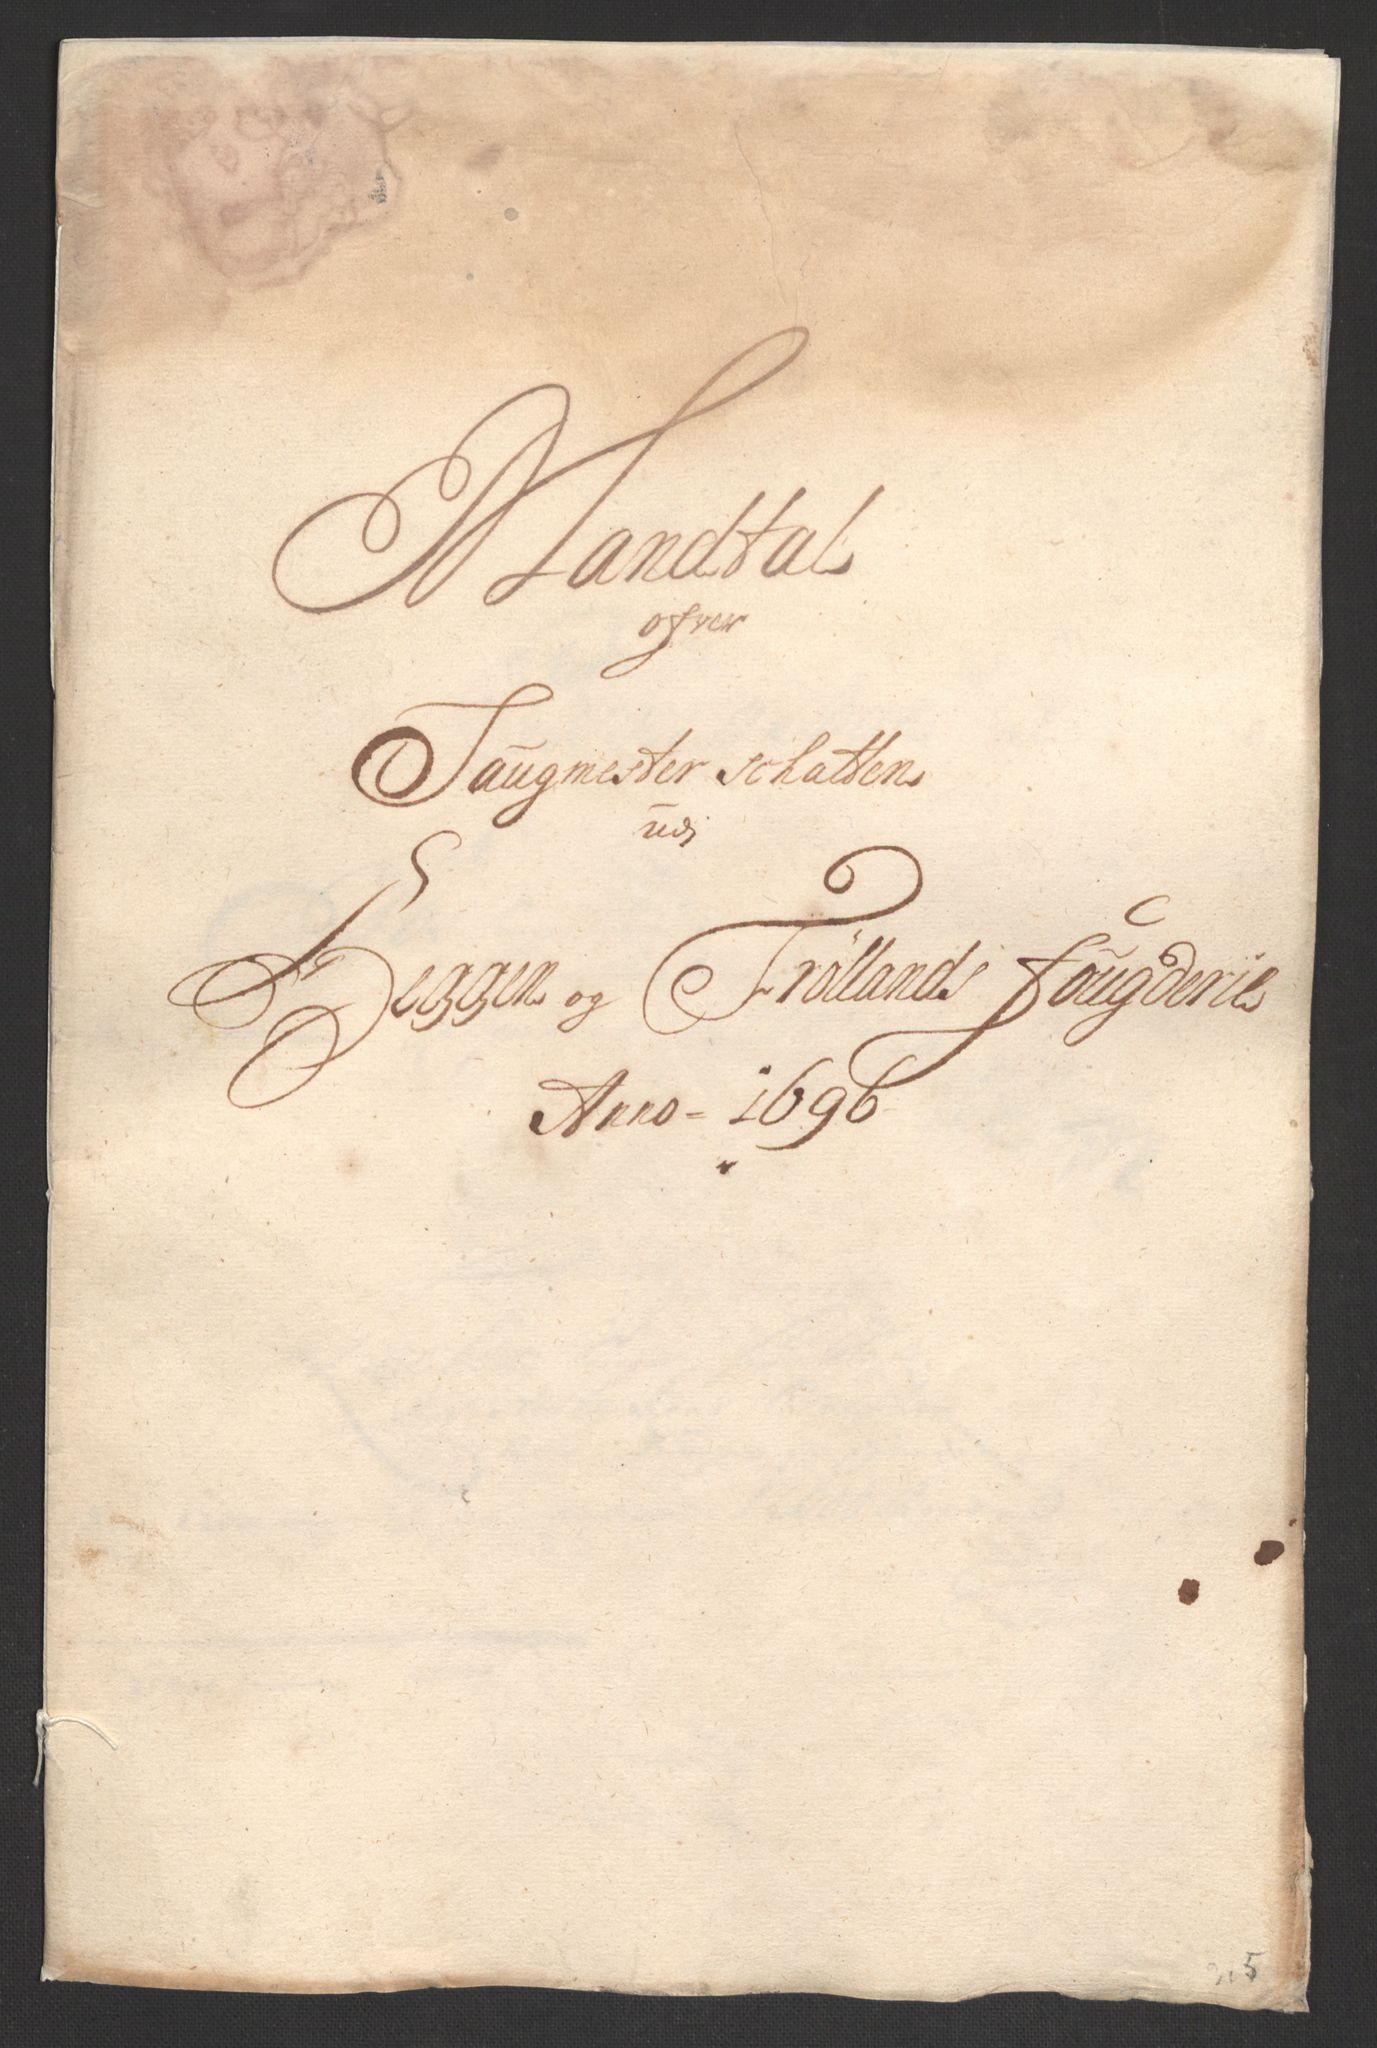 Mandtal
ofver
Saugmester schatten
udj
Heggen og Fröllands fougderie
Anno - 1696